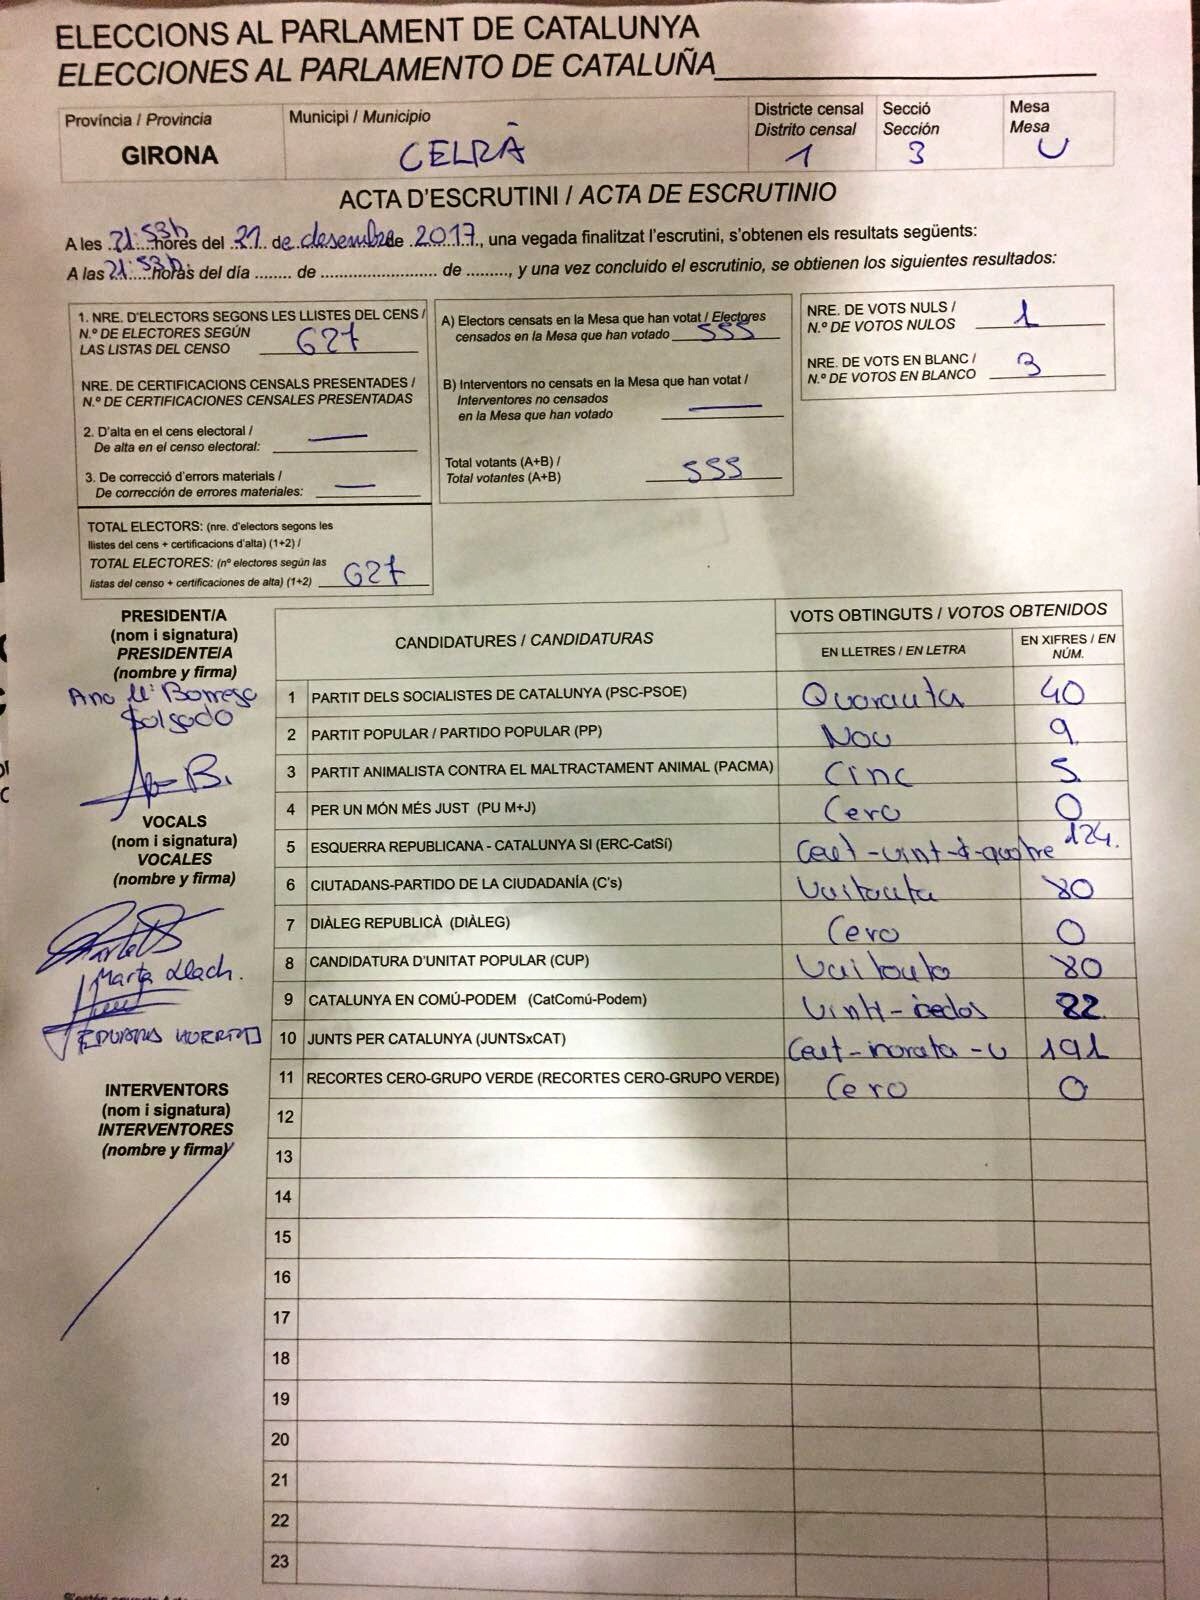 ELECCIONS AL PARLAMENT DE CATALUNYA
ELECCIONES AL PARLAMENTO DE CATALUÑA
Província / Provincia
GIRONA
Municipi / Municipio
CELRÀ
Districte censal
Distrito censal
1
Secció
Sección
3
Mesa
Mesa
U
ACTA D'ESCRUTINI / ACTA DE ESCRUTINIO
A les 21:53h hores del 21 de desembre de 2017, una vegada finalitzat l'escrutini, s'obtenen els resultats següents:
A las 21:53h horas del día ........ de .......................... de ........., y una vez concluido el escrutinio, se obtienen los siguientes resultados:
1. NRE. D'ELECTORS SEGONS LES LLISTES DEL CENS /
N.º DE ELECTORES SEGÚN
LAS LISTAS DEL CENSO 627
NRE. DE CERTIFICACIONS CENSALS PRESENTADES /
N.º DE CERTIFICACIONES CENSALES PRESENTADAS
2. D'alta en el cens electoral /
De alta en el censo electoral: —
3. De correcció d'errors materials /
De corrección de errores materiales: —
TOTAL ELECTORS: (nre. d'electors segons les
llistes del cens + certificacions d'alta) (1+2) /
TOTAL ELECTORES: (nº electores según las
listas del censo + certificaciones de alta) (1+2) 627
A) Electors censats en la Mesa que han votat / Electores
censados en la Mesa que han votado 555
B) Interventors no censats en la Mesa que han votat /
Interventores no censados
en la Mesa que han votado —
Total votants (A+B) /
Total votantes (A+B) 555
NRE. DE VOTS NULS /
N.º DE VOTOS NULOS 1
NRE. DE VOTS EN BLANC /
N.º DE VOTOS EN BLANCO 3
PRESIDENT/A
(nom i signatura)
PRESIDENTE/A
(nombre y firma)
Ana Mª Borrego
Salgado
Ana B.
VOCALS
(nom i signatura)
VOCALES
(nombre y firma)
Marta Llach.
INTERVENTORS
(nom i signatura)
INTERVENTORES
(nombre y firma)
CANDIDATURES / CANDIDATURAS
VOTS OBTINGUTS / VOTOS OBTENIDOS
EN LLETRES / EN LETRA
EN XIFRES / EN NÚM.
1 PARTIT DELS SOCIALISTES DE CATALUNYA (PSC-PSOE) Quaranta 40
2 PARTIT POPULAR / PARTIDO POPULAR (PP) Nou 9
3 PARTIT ANIMALISTA CONTRA EL MALTRACTAMENT ANIMAL (PACMA) Cinc 5
4 PER UN MÓN MÉS JUST (PU M+J) Cero 0
5 ESQUERRA REPUBLICANA - CATALUNYA SI (ERC-CatSí) Cent-vint-i-quatre 124.
6 CIUTADANS-PARTIDO DE LA CIUDADANÍA (C's) Vuitanta 80
7 DIÀLEG REPUBLICÀ (DIÀLEG) Cero 0
8 CANDIDATURA D'UNITAT POPULAR (CUP) Vuitanta 80
9 CATALUNYA EN COMÚ-PODEM (CatComú-Podem) Vint-i-dos 22
10 JUNTS PER CATALUNYA (JUNTSxCAT) Cent-noranta-u 191
11 RECORTES CERO-GRUPO VERDE (RECORTES CERO-GRUPO VERDE) Cero 0
12
13
14
15
16
17
18
19
20
21
22
23